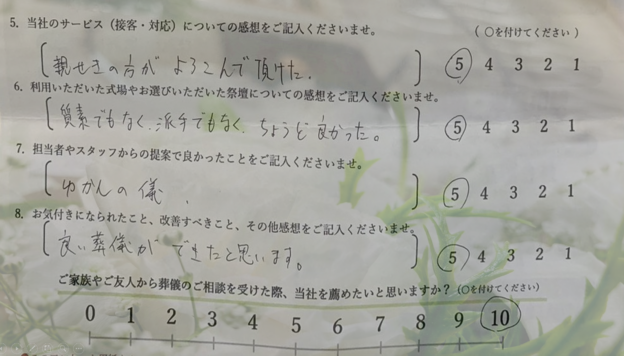 5. 当社のサービス（接客・対応）についての感想をご記入くださいませ。 （ ○を付けてください ）
親せきの方がよろこんで頂けた. 5 4 3 2 1
6. 利用いただいた式場やお選びいただいた祭壇についての感想をご記入くださいませ。
質素でもなく、派手でもなく、ちょうど良かった。 5 4 3 2 1
7. 担当者やスタッフからの提案で良かったことをご記入くださいませ。
ゆかんの儀、 5 4 3 2 1
8. お気付きになられたこと、改善すべきこと、その他感想をご記入くださいませ。
良い葬儀ができたと思います。 5 4 3 2 1
ご家族やご友人から葬儀のご相談を受けた際、当社を薦めたいと思いますか？（○を付けてください）
0 1 2 3 4 5 6 7 8 9 10